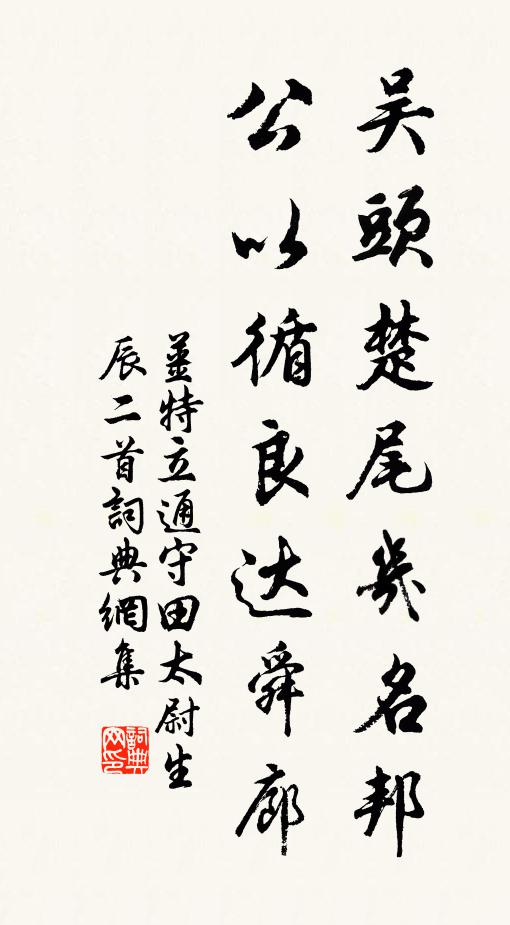 吴頭楚尾幾名邦
公以循良达舜廊
薑特立通守田太尉生
辰二首詞典網集
詞典网印